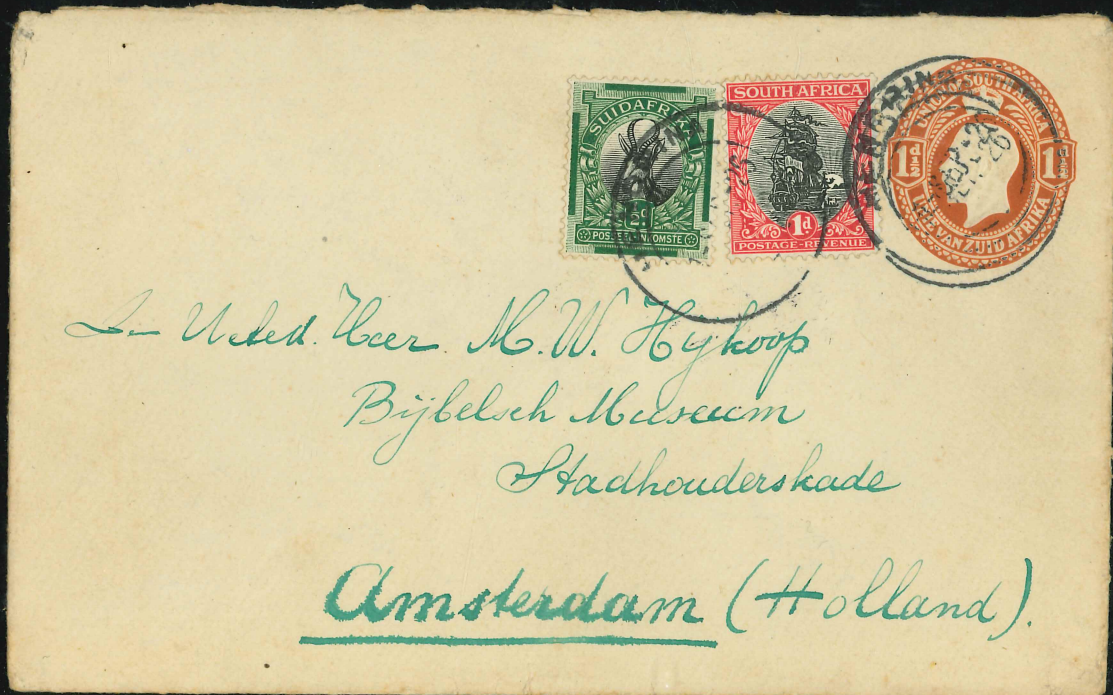 SUIDAFRIKA
½d
POSSEËL-INKOMSTE
SOUTH AFRICA
1d
POSTAGE-REVENUE
UNION OF SOUTH AFRICA
1½d 1½d
UNIE VAN ZUID AFRIKA
26
Heer M. W. Hijkoop
Bijbelsch Museum
Stadhouderskade
Amsterdam (Holland).